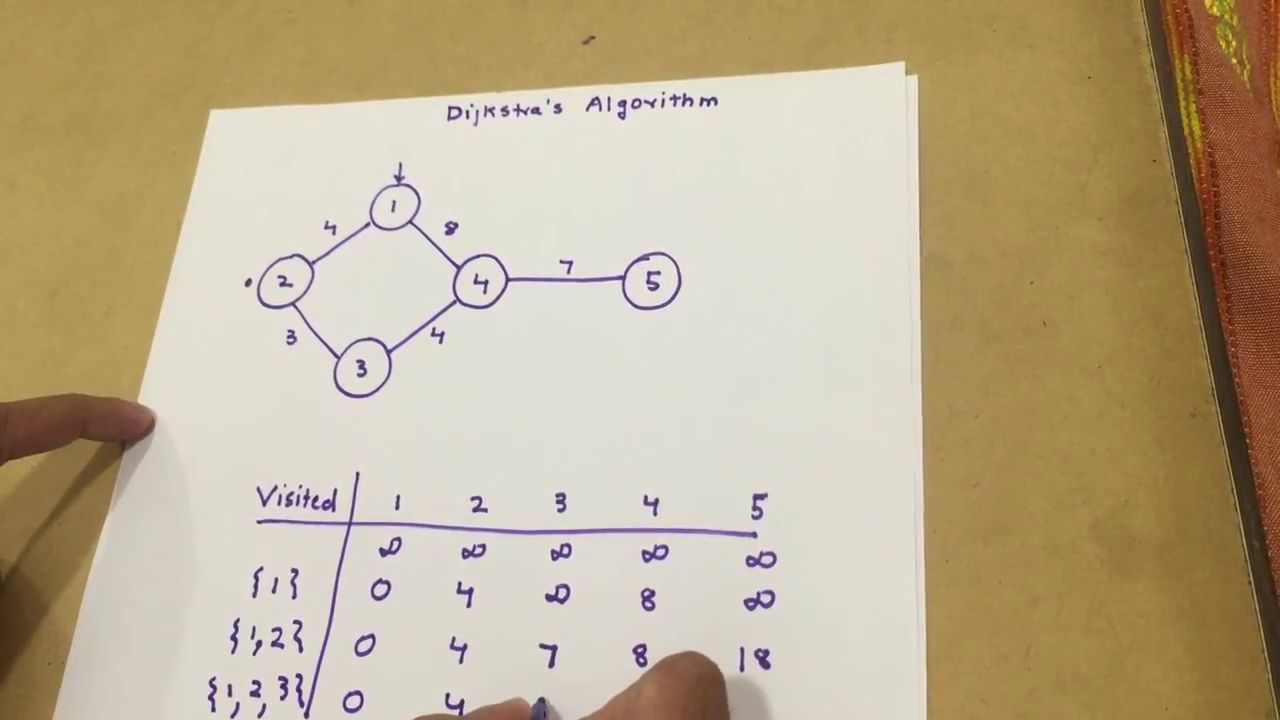 Dijkstra's Algorithm
1
4 8
2 4 7 5
3 4
3
Visited 1 2 3 4 5
∞ ∞ ∞ ∞ ∞
{1} 0 4 ∞ 8 ∞
{1,2} 0 4 7 8 18
{1,2,3} 0 4